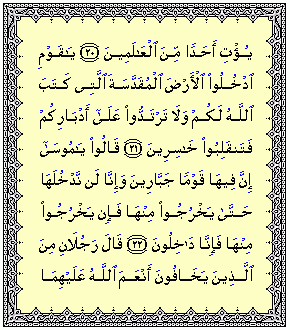 يُؤْتِ أَحَدًا مِّنَ ٱلْعَٰلَمِينَ ٢٠ يَٰقَوْمِ
ٱدْخُلُوا۟ ٱلْأَرْضَ ٱلْمُقَدَّسَةَ ٱلَّتِى كَتَبَ
ٱللَّهُ لَكُمْ وَلَا تَرْتَدُّوا۟ عَلَىٰٓ أَدْبَارِكُمْ
فَتَنقَلِبُوا۟ خَٰسِرِينَ ٢١ قَالُوا۟ يَٰمُوسَىٰٓ
إِنَّ فِيهَا قَوْمًا جَبَّارِينَ وَإِنَّا لَن نَّدْخُلَهَا
حَتَّىٰ يَخْرُجُوا۟ مِنْهَا فَإِن يَخْرُجُوا۟
مِنْهَا فَإِنَّا دَٰخِلُونَ ٢٢ قَالَ رَجُلَانِ مِنَ
ٱلَّذِينَ يَخَافُونَ أَنْعَمَ ٱللَّهُ عَلَيْهِمَا